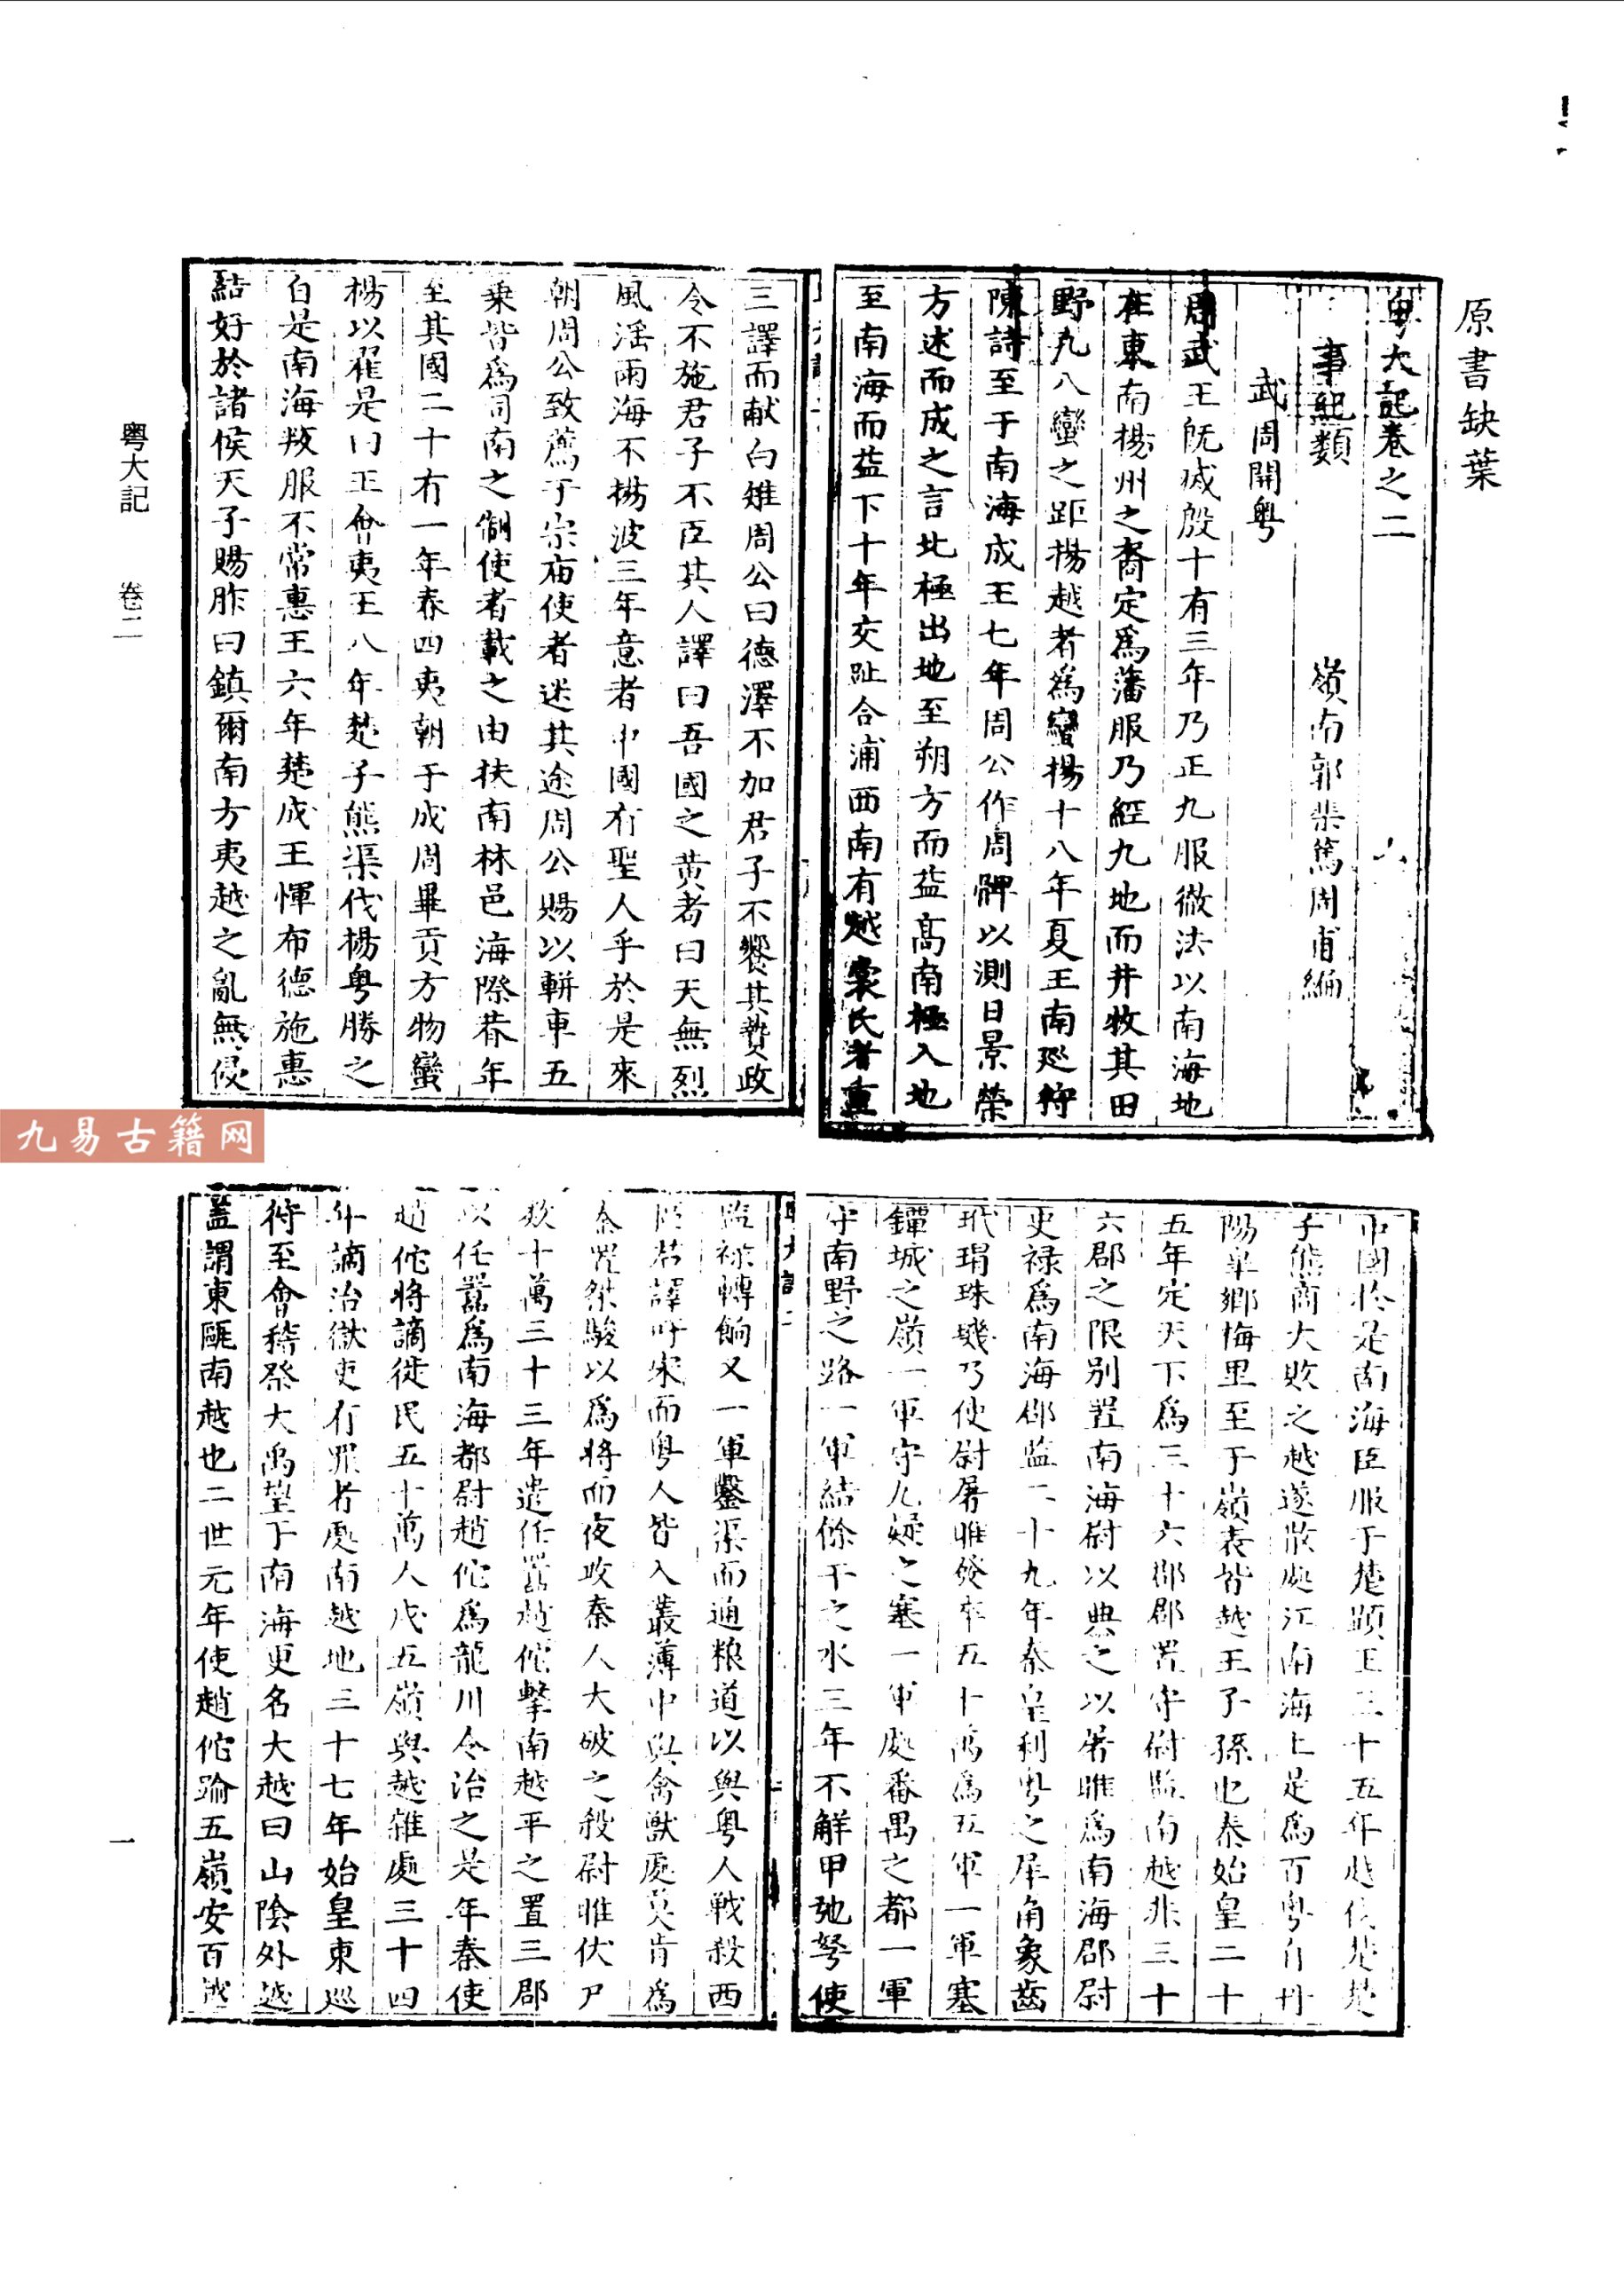 原書缺葉
粤大記卷之二
事紀類
嶺南郭棐篤周甫編
武周開粤
周武王既滅殷十有三年乃正九服徹法以南海地
在東南揚州之裔定爲藩服乃經九地而井牧其田
野九八蠻之距揚越者爲蠻揚十八年夏王南廵狩
陳詩至于南海成王七年周公作周髀以測日景榮
方述而成之言北極出地至朔方而益高南極入地
至南海而益下十年交趾合浦西南有越裳氏者重
三譯而献白雉周公曰德澤不加君子不饗其贄政
令不施君子不臣其人譯曰吾國之黄者曰天無烈
風滛雨海不揚波三年意者中國有聖人乎於是來
朝周公致薦于宗庙使者迷其途周公賜以輧車五
乗皆爲司南之制使者載之由扶南林邑海際朞年
至其國二十有一年春四夷朝于成周畢貢方物蠻
楊以翟是曰王會夷王八年楚子熊渠伐楊粤勝之
自是南海叛服不常惠王六年楚成王惲布德施惠
結好於諸侯天子賜胙曰鎮爾南方夷越之亂無侵
中國於是南海臣服于楚顯王三十五年越伐楚楚
子熊商大敗之越遂散處江南海上是爲百粤自丹
陽皐鄉梅里至于嶺表皆越王子孫也秦始皇二十
五年定天下爲三十六郡郡置守尉監南越非三十
六郡之限别置南海尉以典之以屠睢爲南海郡尉
史禄爲南海郡監二十九年秦皇利粤之犀角象齒
玳瑁珠璣乃使尉屠睢發卒五十萬爲五軍一軍塞
鐔城之嶺一軍守九嶷之塞一軍處番禺之都一軍
守南野之路一軍結餘干之水三年不觧甲弛弩使
監祿轉餉又一軍鑿渠而通粮道以與粤人戦殺西
甌君譯吁宋而粤人皆入叢薄中與禽獸處莫肯爲
秦置桀駿以爲将而夜攻秦人大破之殺尉睢伏尸
数十萬三十三年遣任囂趙佗擊南越平之置三郡
以任囂爲南海都尉趙佗爲龍川令治之是年秦使
趙佗将謫徙民五十萬人戍五嶺與越雜處三十四
年謫治獄吏有罪者處南越地三十七年始皇東廵
狩至會稽祭大禹望于南海更名大越曰山陰外越
盖謂東甌南越也二世元年使趙佗踰五嶺安百越
粤大記 卷二
一
九易古籍网